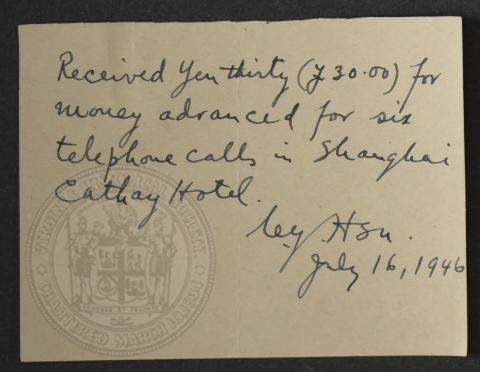 Received Yen thirty (¥30.00) for
money advanced for six
telephone calls in Shanghai
Cathay Hotel.
C.Y. Hsu.
July 16, 1946
VIRGINIA HISTORICAL SOCIETY.
CHARTERED MARCH 10 1834